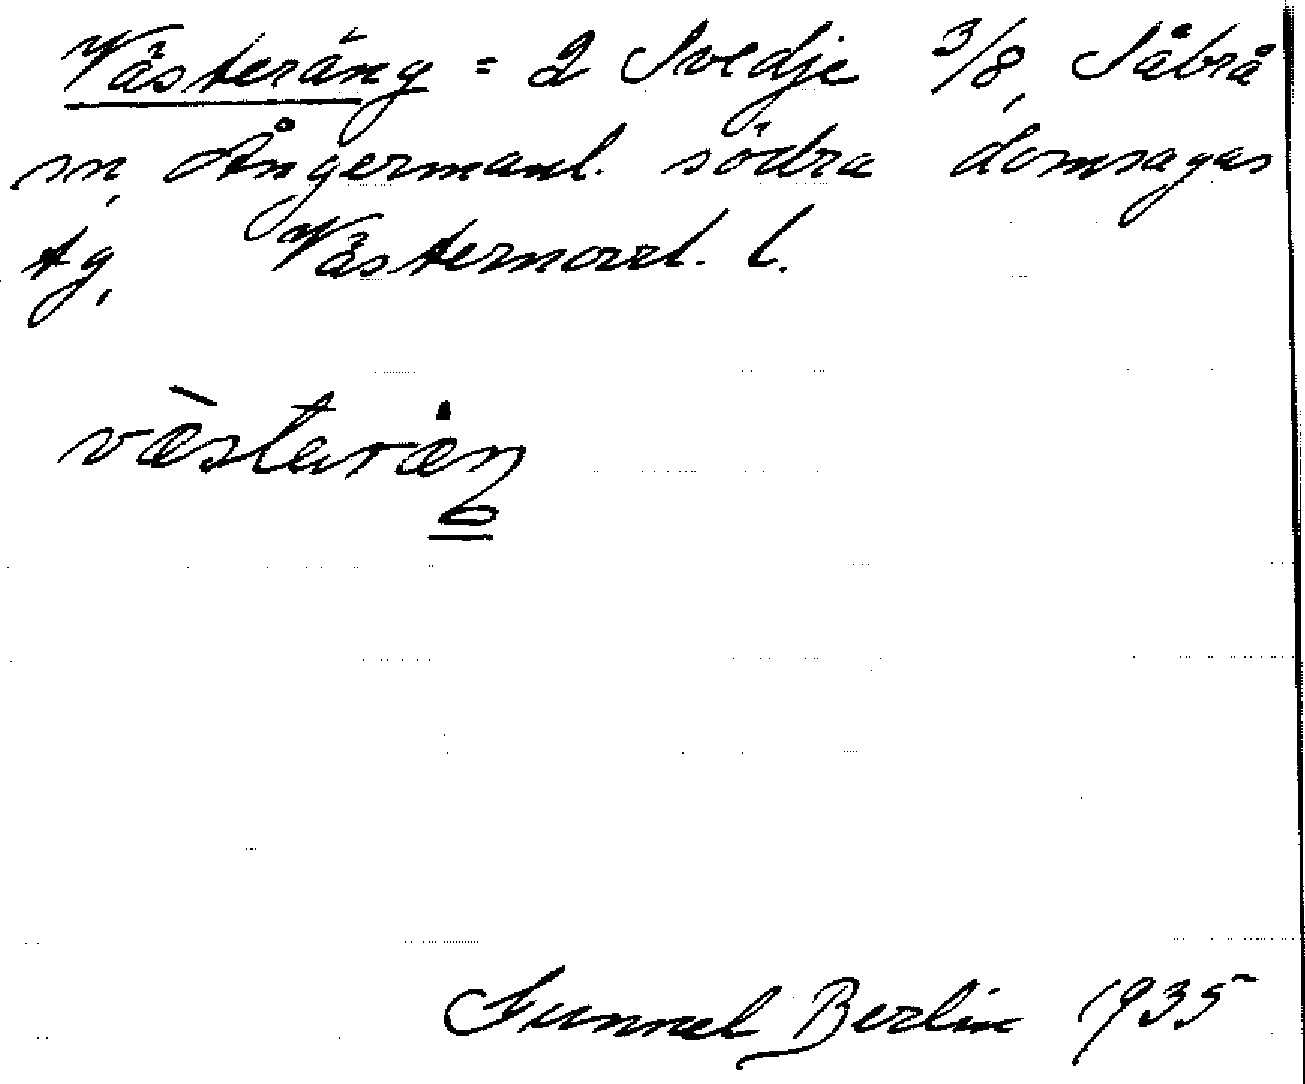 Västeräng = 2 Svedje 3/8, Säbrå
sn, Ångermanl. södra domsagas
tg, Västernorrl. l.
væ̀staræŋ
Gunnel Berlin 1935